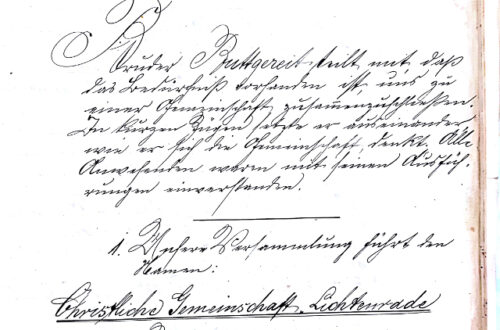 Bruder Buttgereit teilt mit daß
das Bedürfniß vorhanden ist uns zu
einer Gemeinschaft zusammenzuschließen.
In kurzen Zügen setzte er auseinander
wie er sich die Gemeinschaft denkt. Alle
Anwesenden waren mit seinen Ausfüh-
rungen einverstanden.
1. Unsere Versammlung führt den
Namen:
Christliche Gemeinschaft Lichtenrade